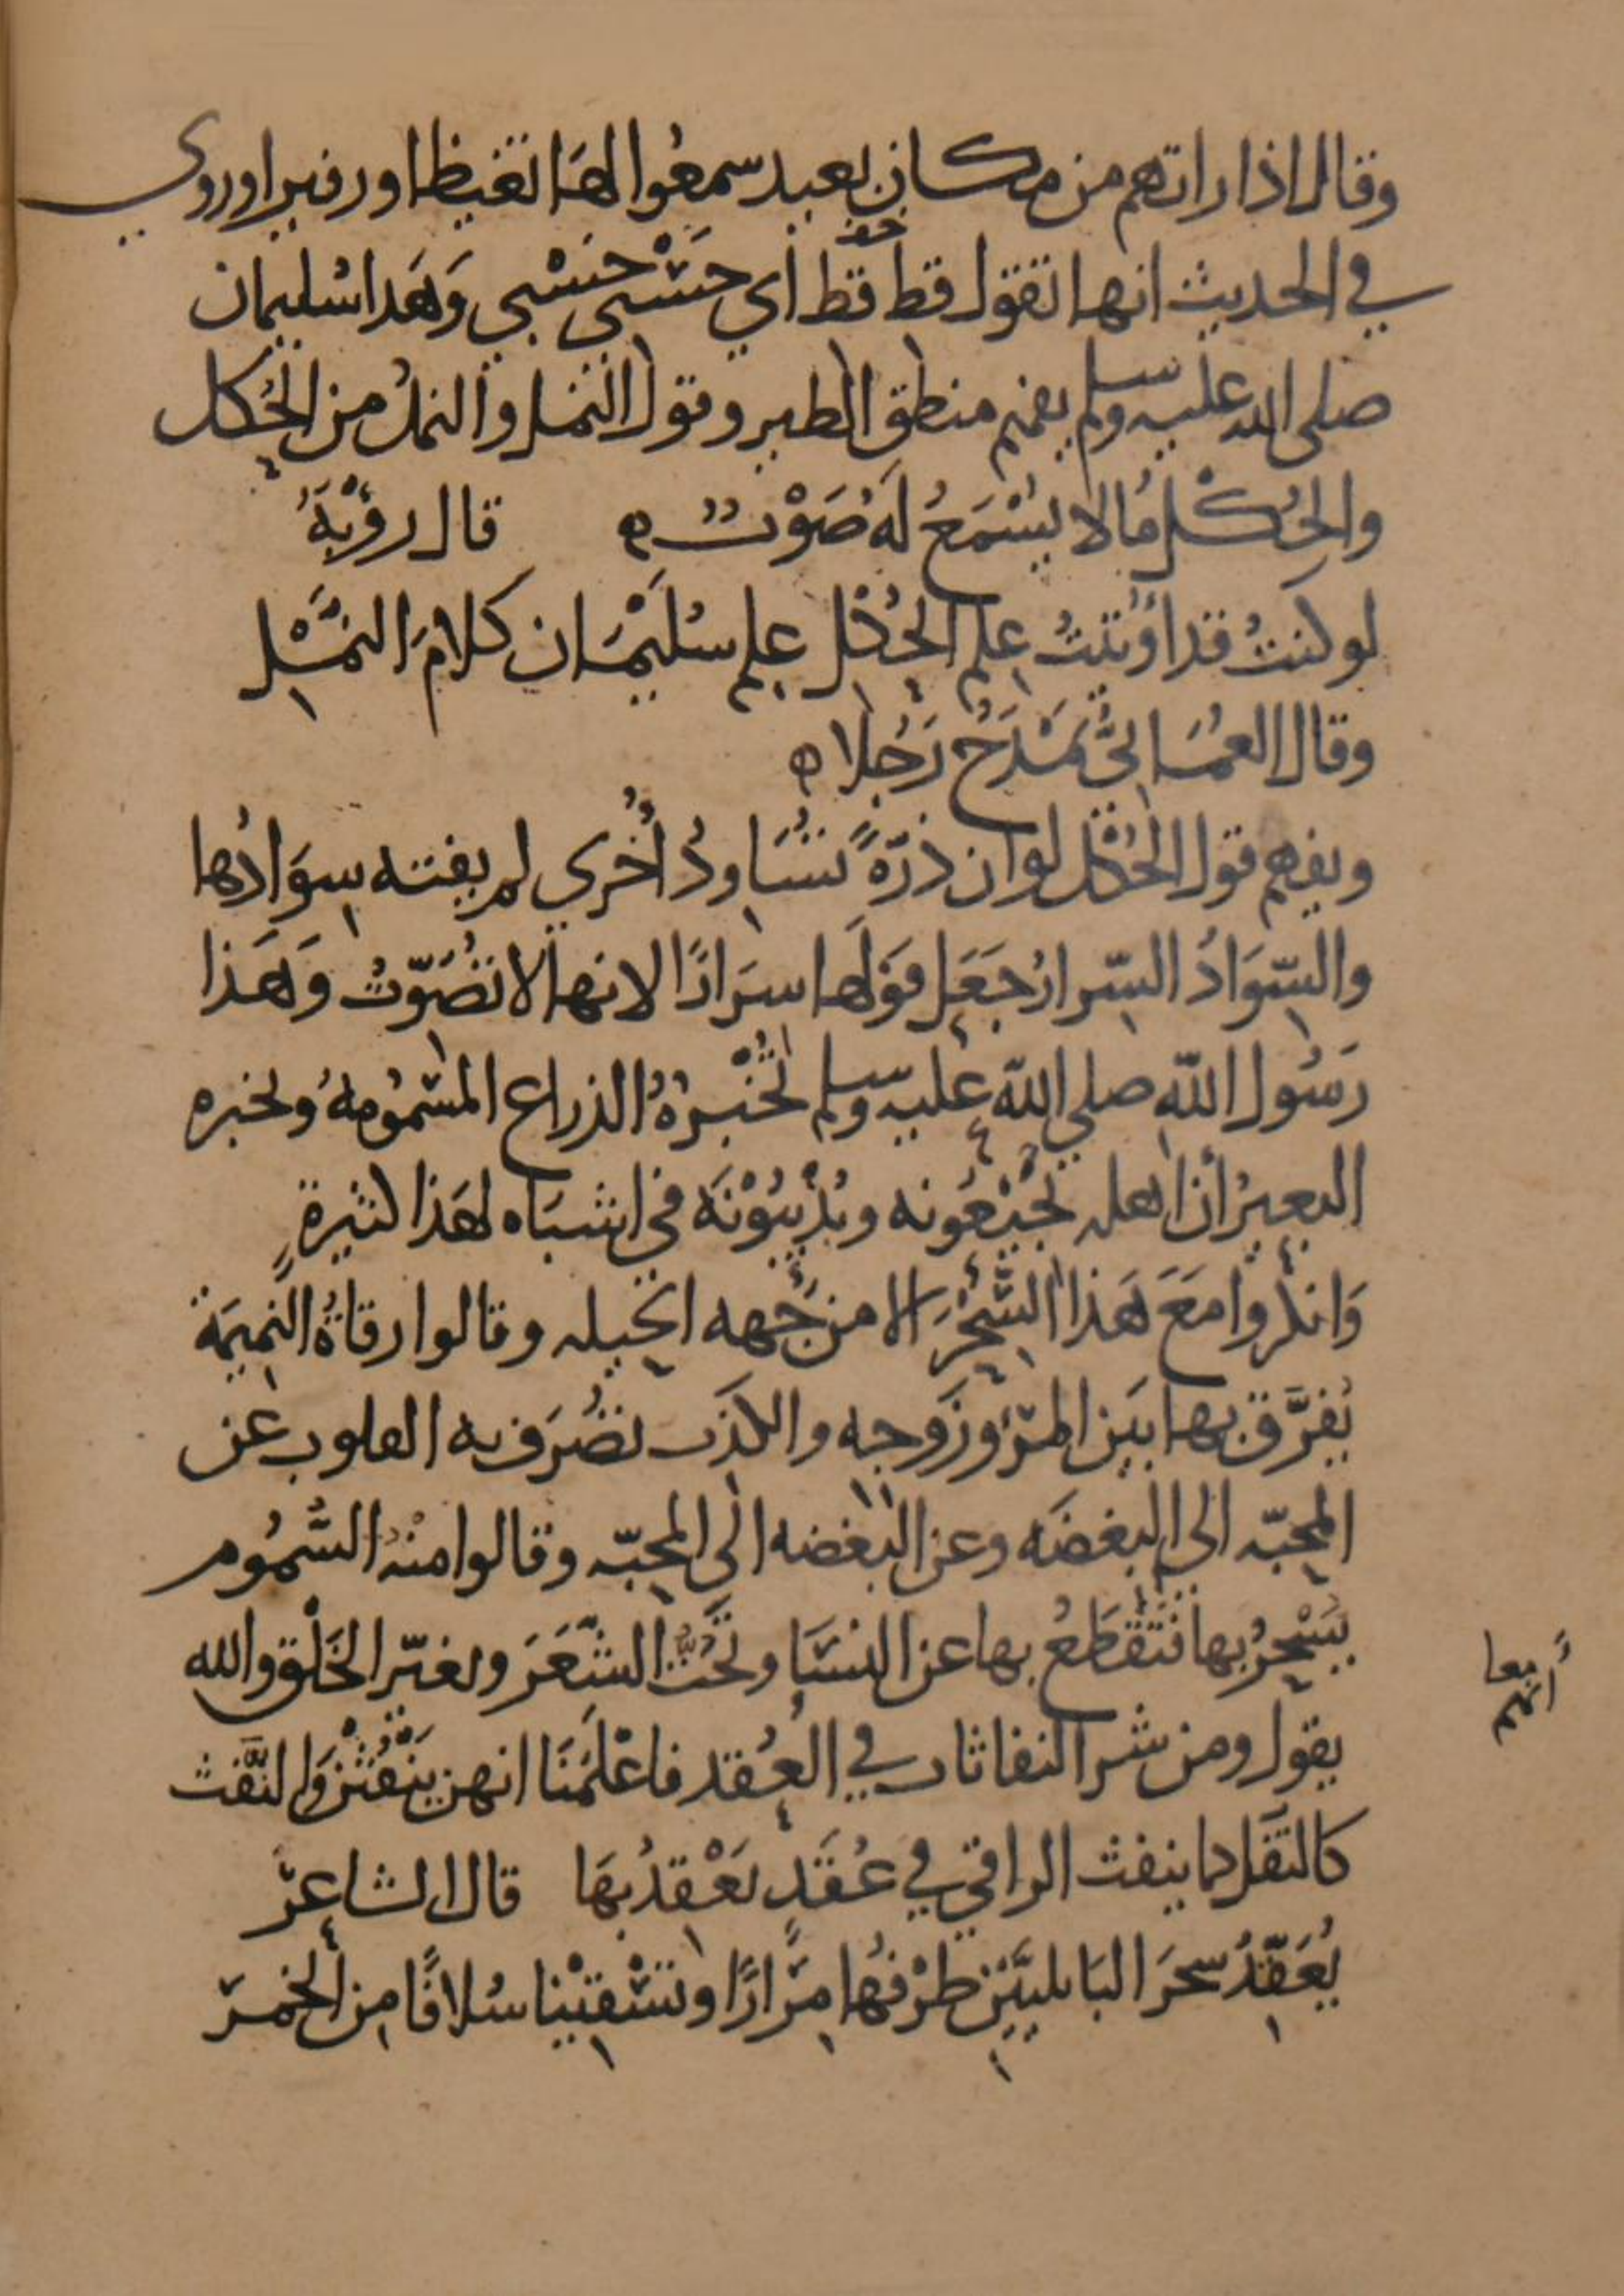 وقال اذا راتهم من مكان بعيد سمعوا لها تغيظا وزفيرا وروي
في الحديث انها تقول قط قط اي حسبي حسبي وَهَذا سُليمان
صلى الله عليه وسلم يفهم منطق الطير وقول النمل والنملُ من الحُكل
والحُكْلُ مَا لا يُسْمَعُ لَهُ صَوْتٌ ه قال رؤبَةُ
لو كنتُ قد أوتيتُ علم الحُكْل علم سُليْمَان كلامَ النَّمْل
وقال العُمَانِيُّ يَمْدَحُ رَجُلا ه
ويفهم قول الحُكْل لو ان ذرّةً تُسَاودُ اُخْرى لم يفته سِوَادُها
والسّوَادُ السّرارُ جَعَل قولَها سِرَارًا لانها لا تُصَوّتُ وَهَذا
رَسُول الله صلى الله عليه وسلم تُخْبِرُهُ الذراع المسْمُومةُ ويخبره
البعيرُ أن اهله يُجِيْعُونه ويُدْئِبُوْنَهُ في اشبَاه لهَذا كثيرةٍ
وَانكروا مَعَ هَذا السِّحْرَ الا من جهه الحيله وقالوا رقاةُ النَميمَة
يُفرَّق بها بَين المرْءِ وزَوجه والكذب تُصْرَف به القلوب عن
المحبّه الى البغضَه وعن البغضه الى المحبّه وقالوا منْهُ السُّمُوم
يُسْحِرُ بها فتَقْطَعُ بها عن النسَا وتَحُتُّ الشّعَرَ وتغيّر الخَلْق والله
يقول ومن شر النفاثات في العُقَد فاعْلَمَنَا انهن يَنْفُثْنَ والنَّفث
كالتفَل كما ينفث الراقي في عُقَدٍ يَعْقِدُ بهَا قال الشاعرُ
يُعَقّدُ سحرَ البَابليّينِ طرْفُها مِرَارًا وتسْقيْنا سُلافًا من الخمرِ